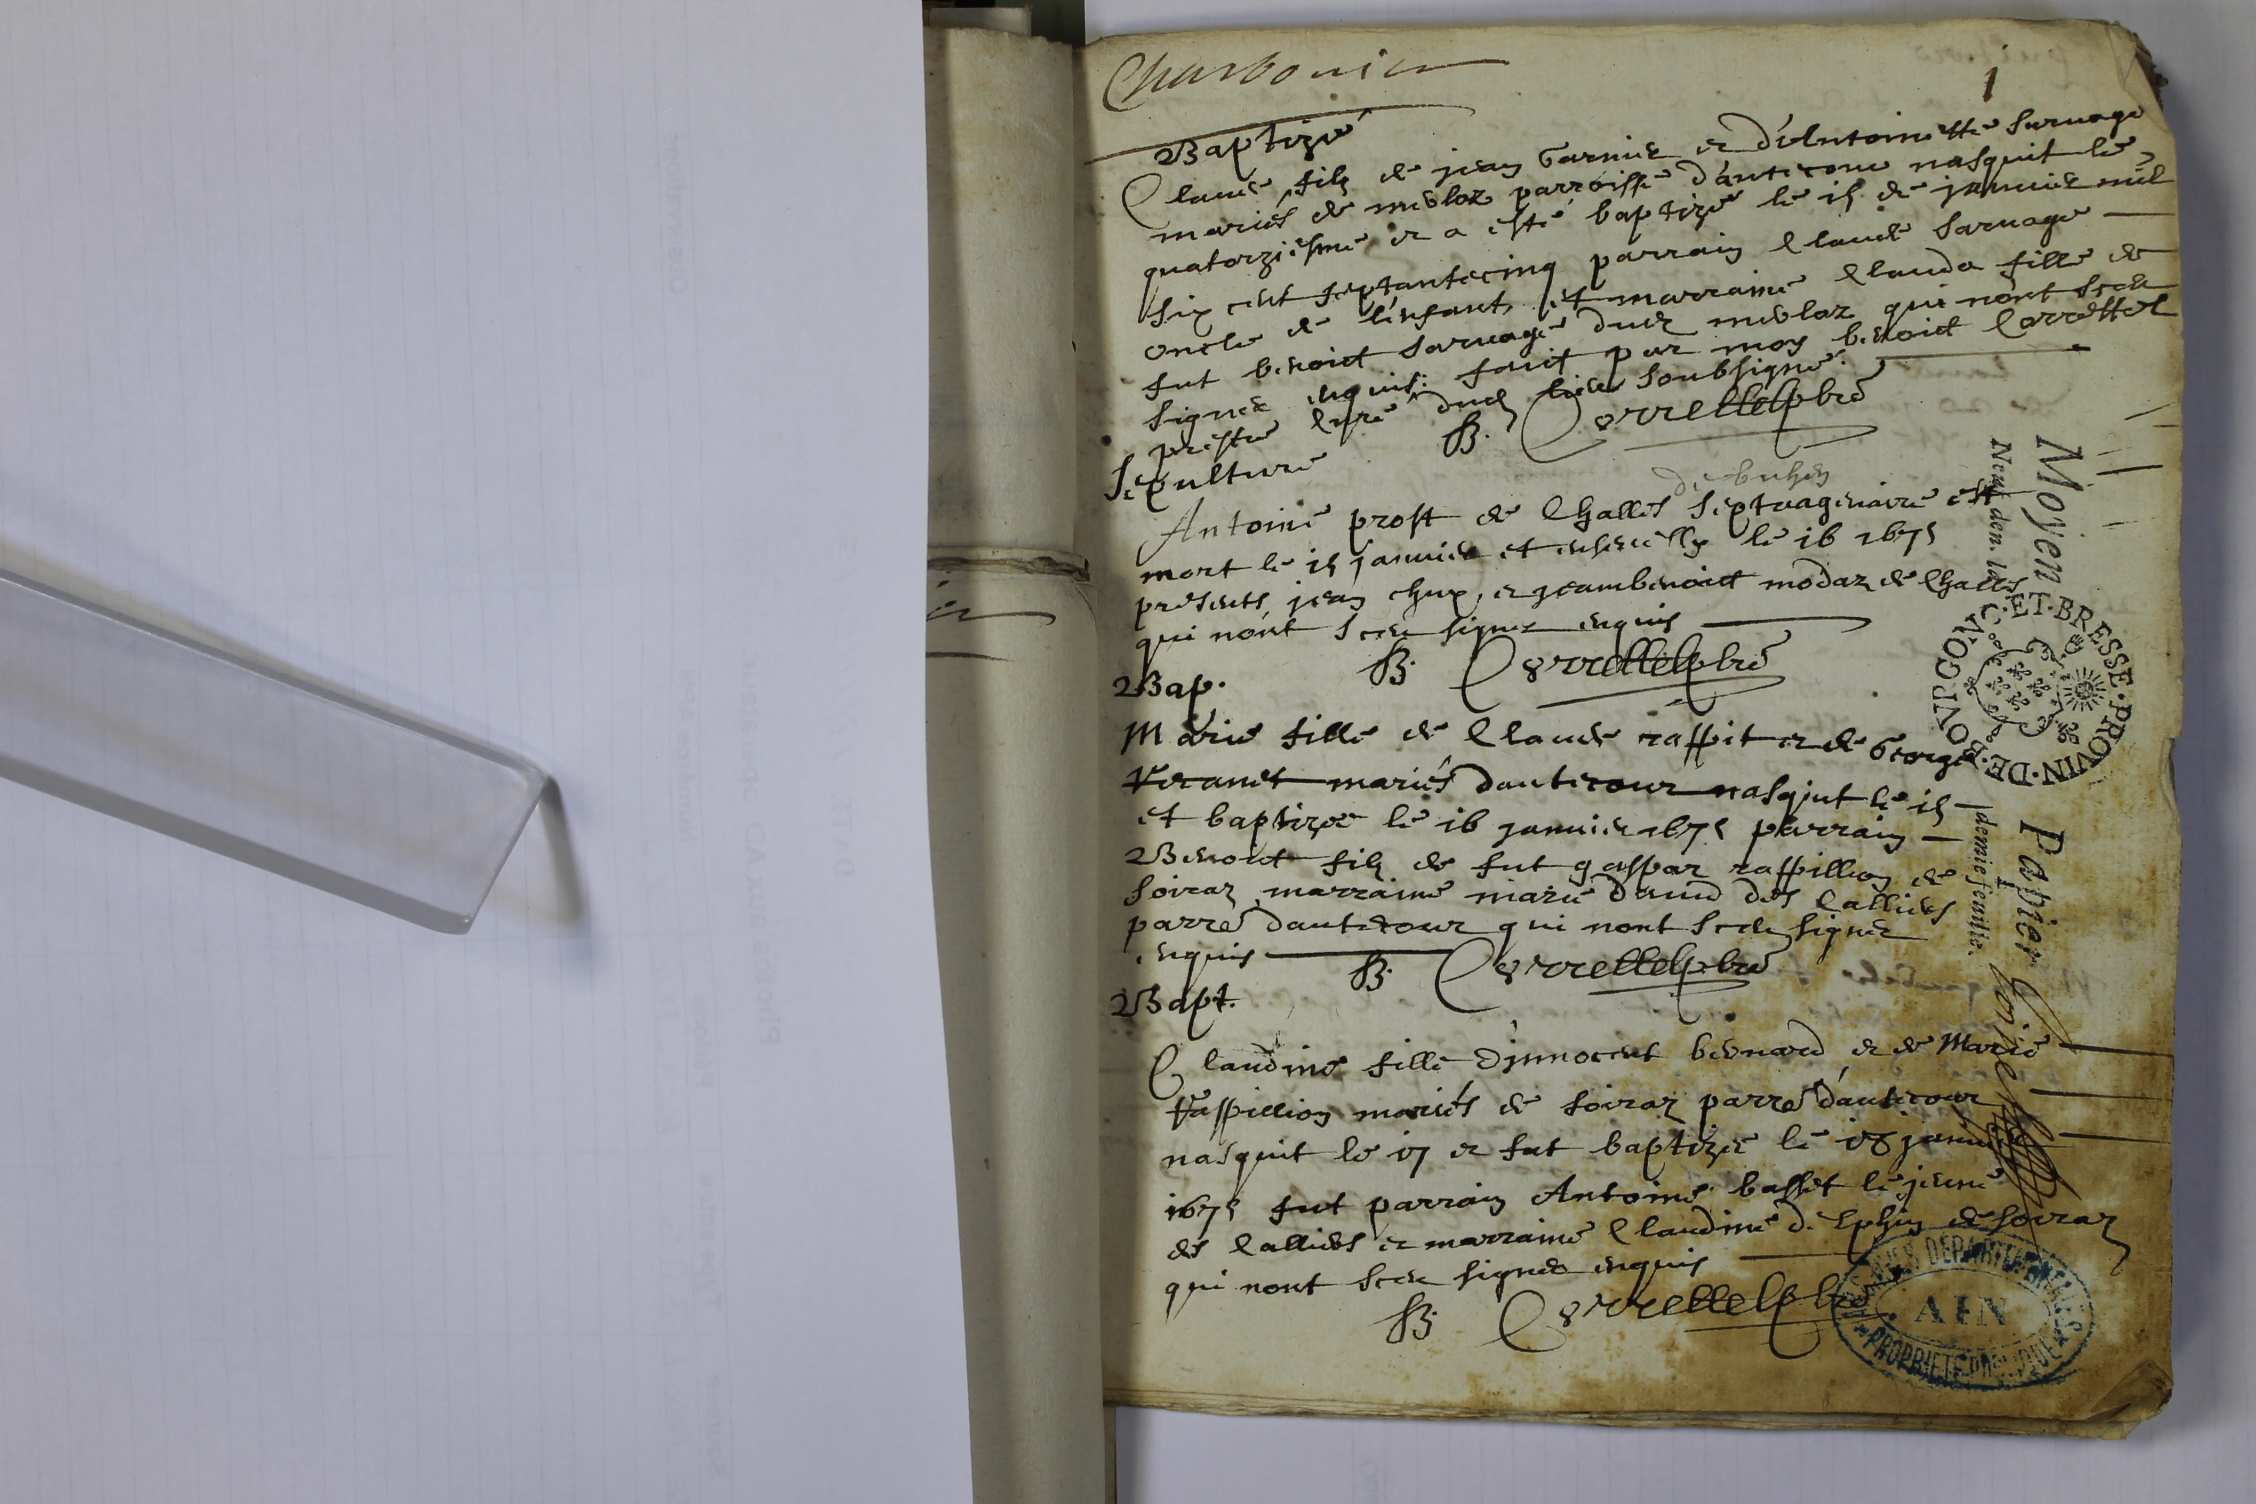 Charbonier
1
Baptizé
Claude filz de jean Garnier et d'Antoinette Saruage
mariés de meulaz parroisse d'antecour nasquit le
quatorziesme et a esté baptizé le 15 de januier mil
six cent septantecinq parrain Claude Saruage
oncle de l'enfant et marraine Clauda fille de
fut benoict Saruage dud meulaz qui nont sceu
signer enquis: faict par moy benoict Correttel
prestre curé dud lieu soubsigné.
B. Correttel pbre
Sepulture
Antoine prost de Challes septuagenaire est
mort le 15 januier et enseuelly le 16 1675
presents, jean chux, et jeambenoict modaz de Challes
qui nont sceu signer enquis
B. Correttel pbre
Bap.
Marie fille de Claude raffit et de George
mariés dantecour nasquit le 15
et baptizée le 16 januier 1675 parrain
Benoict filz de fut gaspar raffillion de
soiraz marraine marie Dauid des Callies
parre dantecour qui nont sceu signer
enquis
B. Correttel pbre
Bapt.
Claudine fille d'innocent bernard et de Marie
Raffillion mariés de soiraz parre d'antecour
nasquit le 17 et fut baptizée le 18 januier
1675 fut parrain Antoine basset le jeune
des Callies et marraine Claudine delphin de soiraz
qui nont sceu signer enquis
B. Correttel pbre
Moyen Papier
Neuf den. la demie feuille.
ET·BRESSE·PROVIN·DE·BOVRGOVG
ARCHIVES DEPARTEMENTALES
AIN
PROPRIETE PUBLIQUE